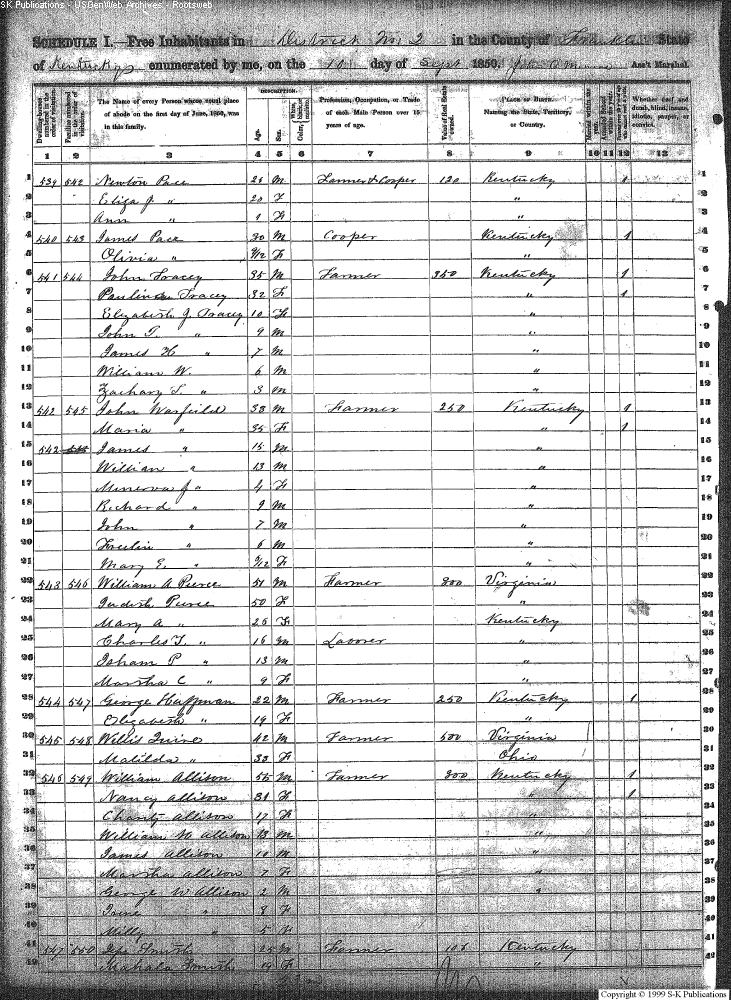 SK Publications - USGenWeb Archives - Rootsweb
SCHEDULE I.—Free Inhabitants in District No. 2 in the County of Franklin State
of Kentucky enumerated by me, on the 10 day of Sept 1850. Ass't Marshal.
Dwelling-houses numbered in the order of visitation.
Families numbered in the order of visitation.
The Name of every Person whose usual place of abode on the first day of June, 1850, was in this family.
DESCRIPTION.
Age.
Sex.
Color, White, black, or mulatto.
Profession, Occupation, or Trade of each Male Person over 15 years of age.
Value of Real Estate owned.
PLACE OF BIRTH. Naming the State, Territory, or Country.
Whether deaf and dumb, blind, insane, idiotic, pauper, or convict.
1 2 3 4 5 6 7 8 9 10 11 12 13
1 539 542 Newton Pace M Farmer & Cooper 120 Kentucky 1 1
2 Eliza J " 20 F " 2
3 Ann " 1 F " 3
4 540 543 James Pace 30 M Cooper Kentucky 1 4
5 Olivia " F " 5
6 541 544 John Tracey 35 M Farmer 350 Kentucky 1 6
7 Paulina Tracey 32 F " 1 7
8 Elizabeth J. Tracey 10 F " 8
9 John T. " 9 M " 9
10 James H " 7 M " 10
11 William W. 6 M " 11
12 Zachary T. " 3 M " 12
13 542 545 John Warfield 38 M Farmer 250 Kentucky 1 13
14 Maria " 35 F " 1 14
15 542 James " 15 M 15
16 William " 13 M " 16
17 Minerva J " 4 F " 17
18 Richard " 9 M " 18
19 John " 7 M " 19
20 " 6 M " 20
21 Mary E. " F " 21
22 543 546 William A Pierce 51 M Farmer 800 Virginia 22
23 Judith Pierce 50 F " 23
24 Mary A " 26 F Kentucky 24
25 Charles T. " 16 M Laborer " 25
26 Isham P " 13 M " 26
27 Marsha C " 9 F " 27
28 544 547 George Huffman 22 M Farmer 250 Kentucky 1 28
29 Elizabeth " 19 F " 29
30 545 548 Willis 42 M Farmer 500 Virginia 30
31 Matilda " 33 F Ohio 31
32 546 549 William Allison 55 M Farmer 800 Kentucky 1 32
33 Nancy Allison 31 F " 1 33
34 Charity Allison 17 F " 34
35 William Allison 13 M " 35
James Allison 10 M "
37 Marsha Allison 7 F "
38 George W Allison 2 M "
39 " 8 F
40 Milly " 5 F
41 547 550 Smith 25 M Farmer Kentucky
42 Mahala Smith 19 F "
Copyright © 1999 S-K Publications